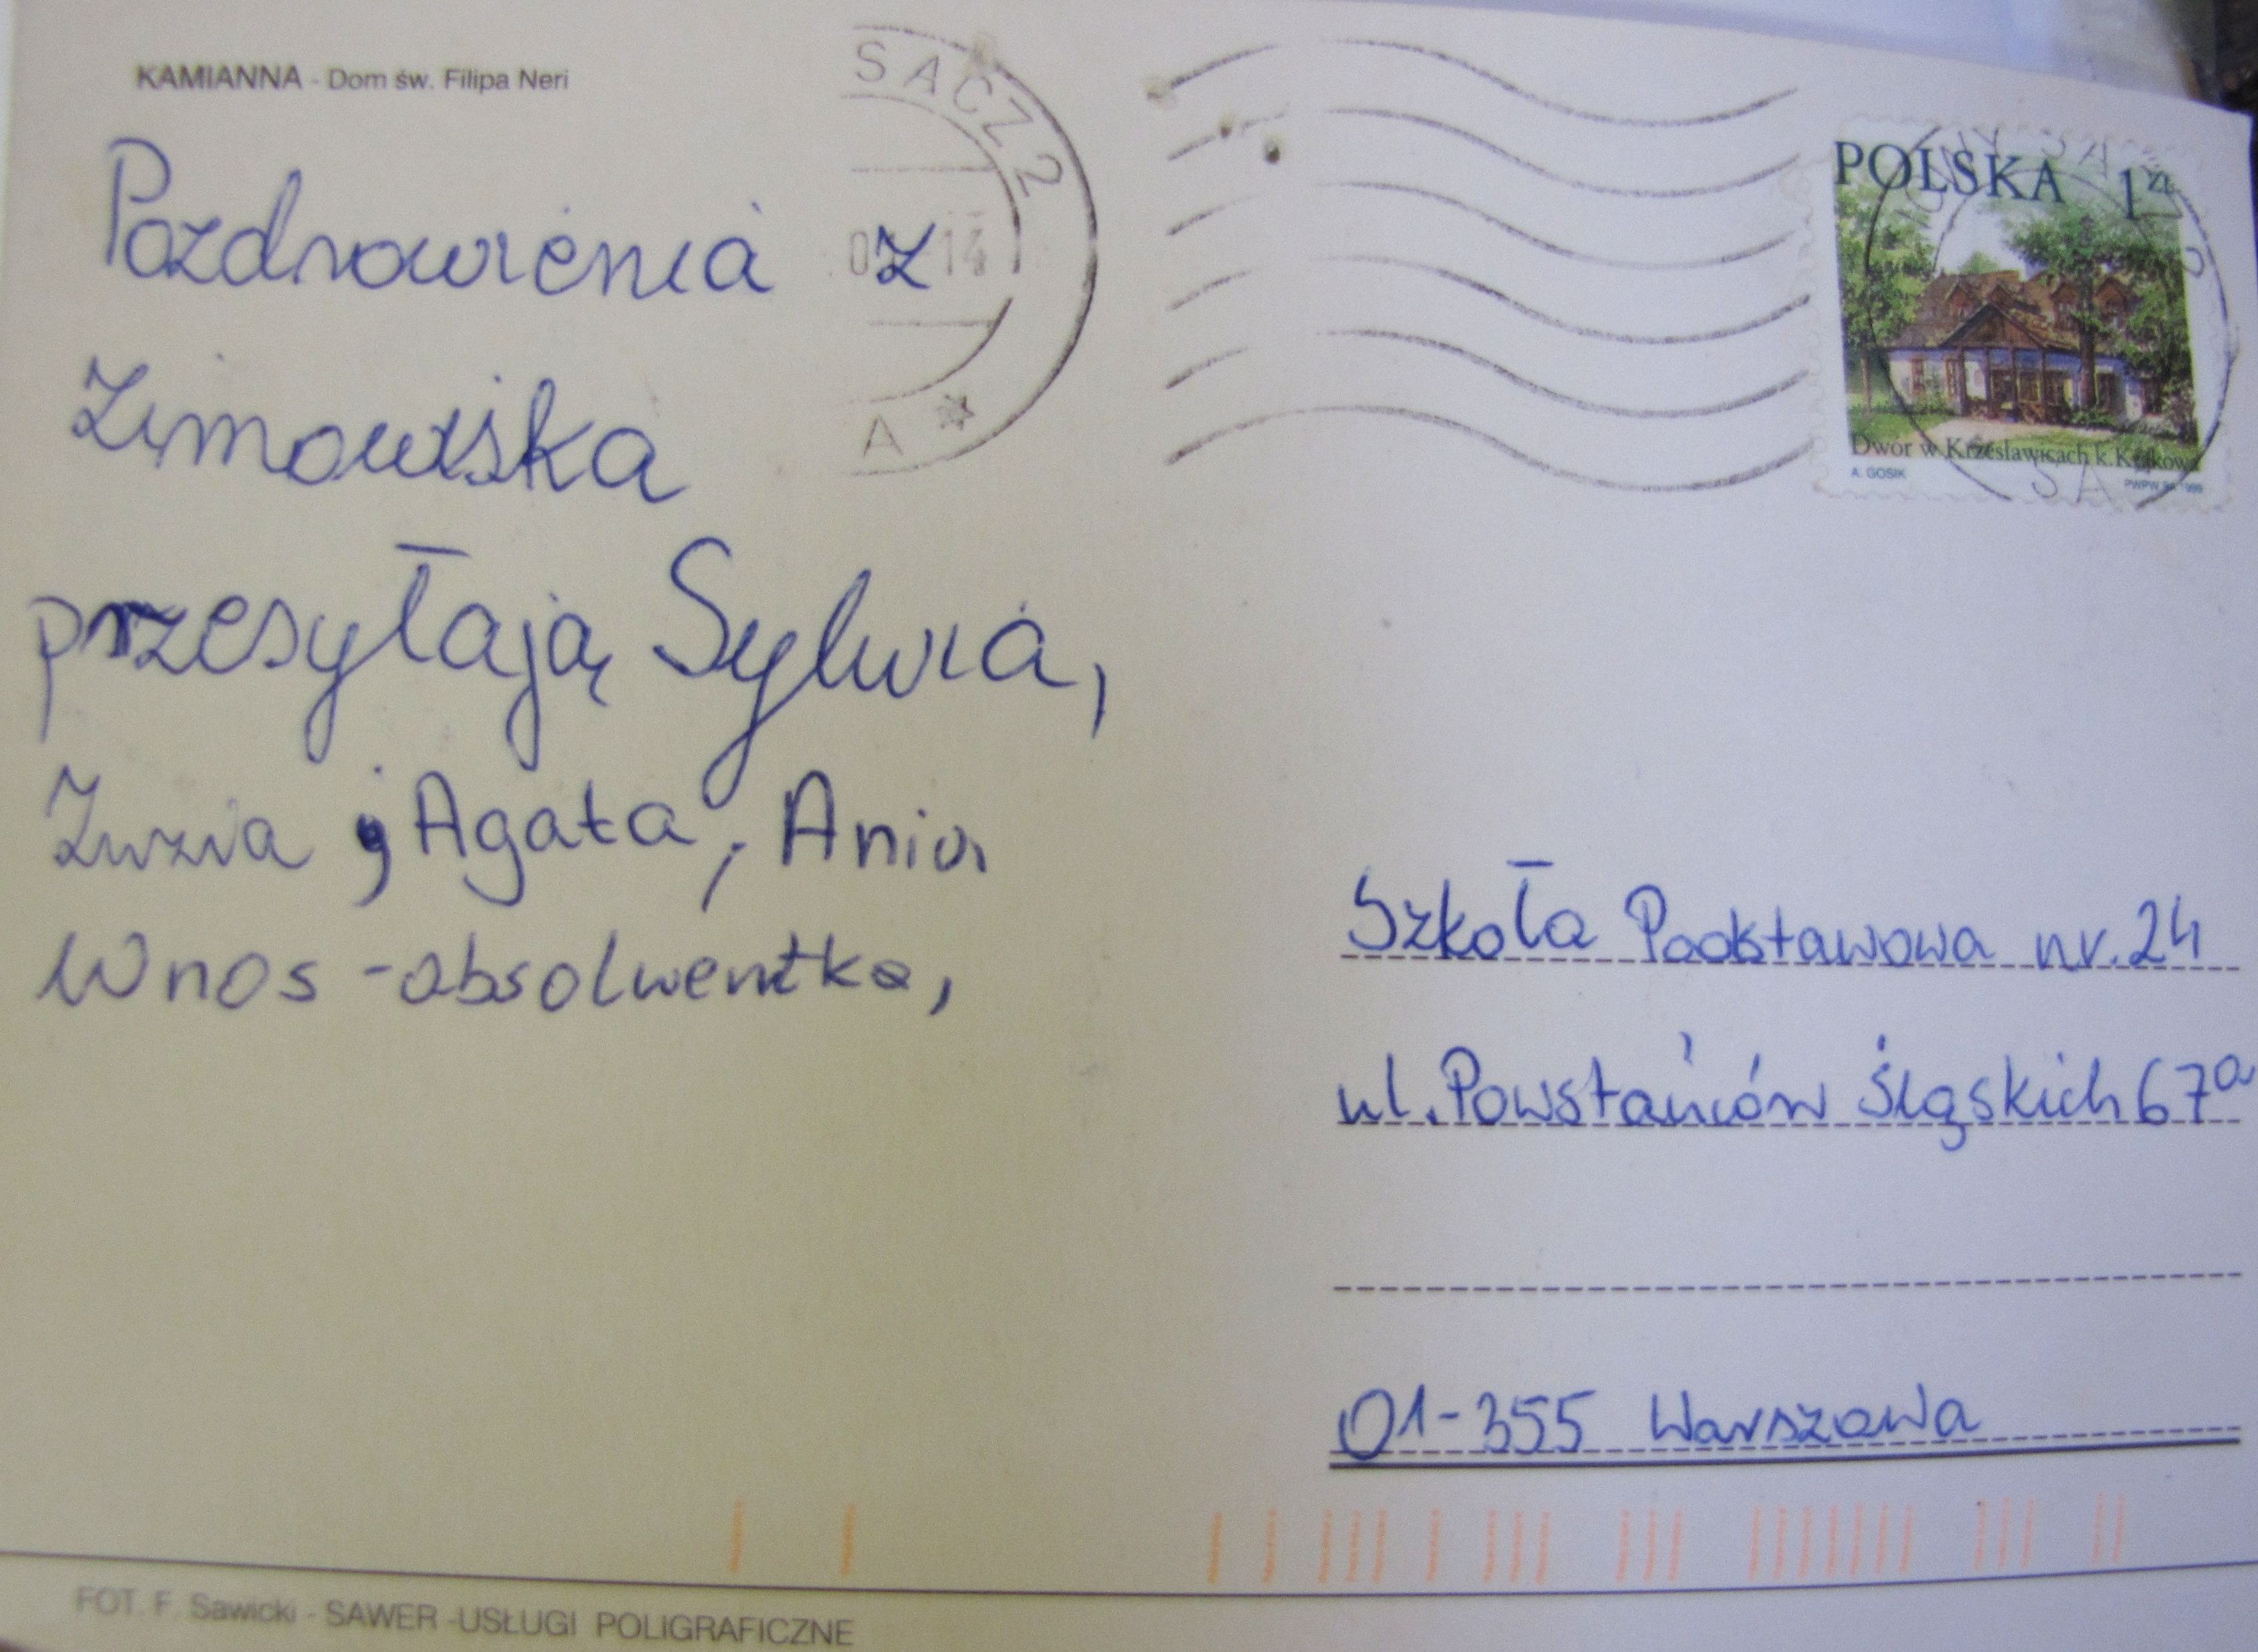 KAMIANNA - Dom św. Filipa Neri
SĄCZ 2
14
A
POLSKA 1 ZŁ
Dwór w Krzesławicach k. Krakowa
A. GOSIK
PWPW SA 1999
Pozdrowienia z
Zimowiska
przesyłają Sylwia,
Zuzia, Agata, Ania
Wnos - absolwentka,
Szkoła Podstawowa nr. 24
ul. Powstańców śląskich 67a
01-355 Warszawa
FOT. F. Sawicki - SAWER -USŁUGI POLIGRAFICZNE